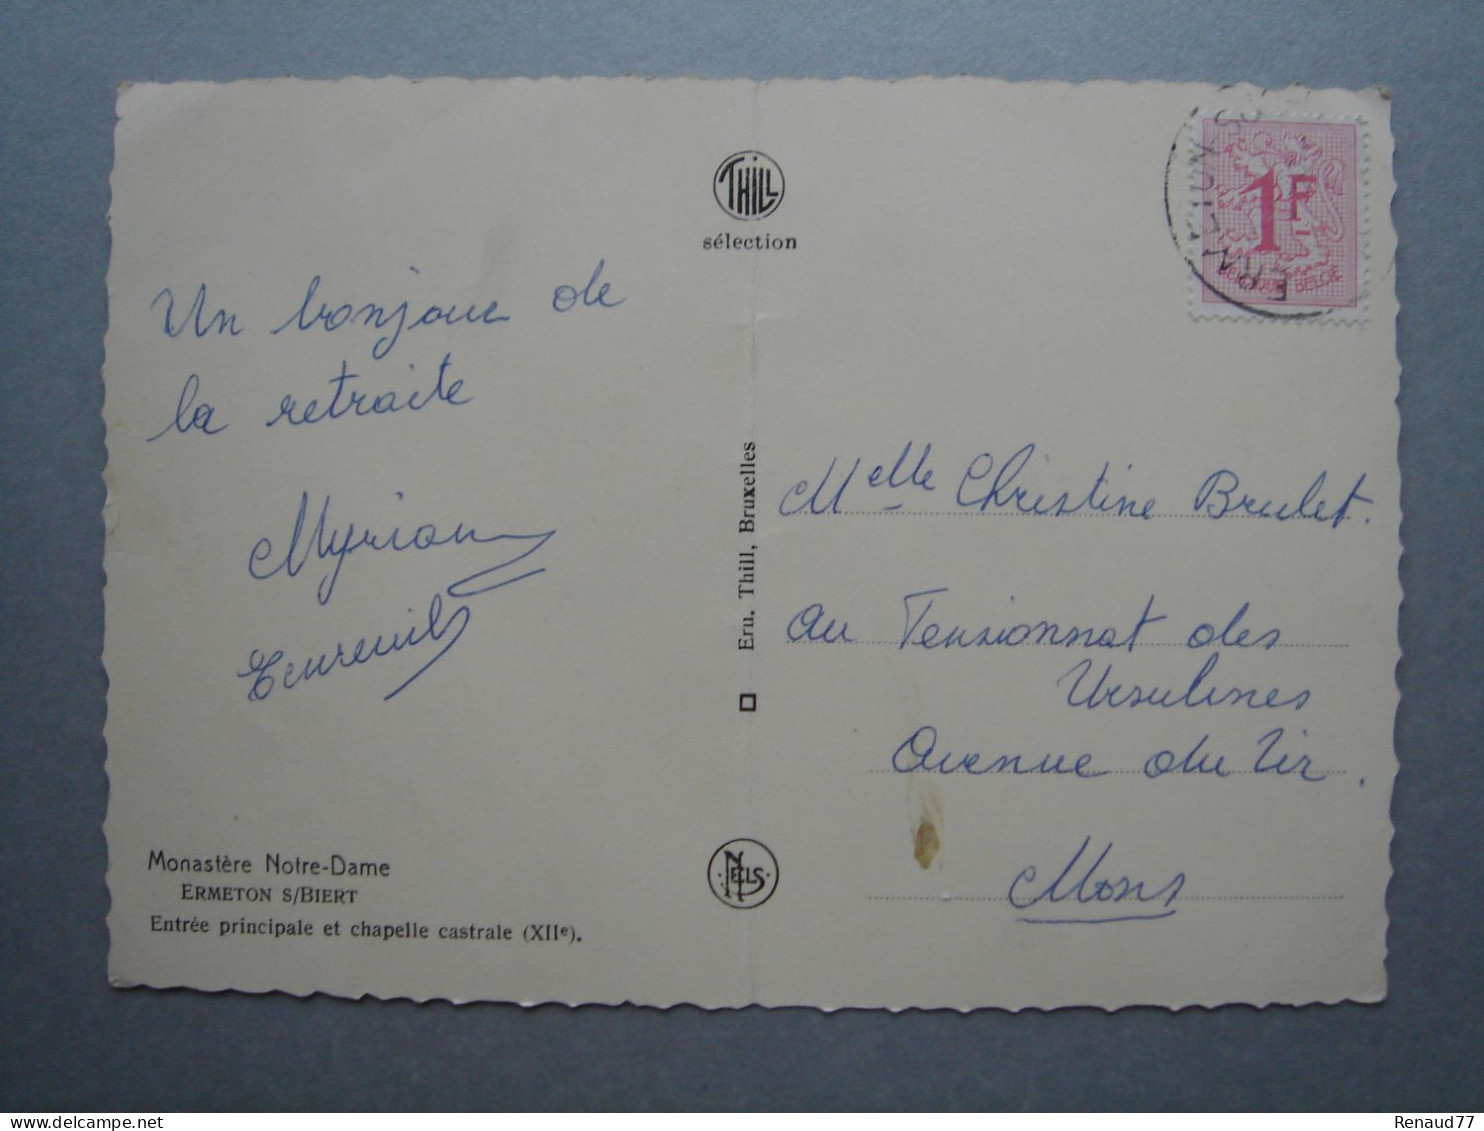 THILL
sélection
Un bonjour de
la retraite
Myriam
1F
BELGIQUE BELGIË
Ern. Thill, Bruxelles
Melle Christine Brulet.
au Pensionnat des
Ursulines
Avenue du Tir.
Mons
Monastère Notre-Dame
ERMETON S/BIERT
Entrée principale et chapelle castrale (XIIe).
NELS
Renaud77